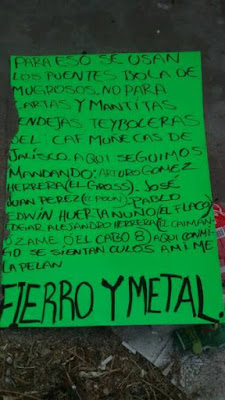 PARA ESO SE USAN
LOS PUENTES BOLA DE
MUGROSOS. NO PARA
CARTAS Y MANTITAS
PENDEJAS TEYBOLERAS
DEL CAF MUÑECAS DE
JALISCO. AQUI SEGUIMOS
MANDANDO: ARTURO GOMEZ
HERRERA (EL GROSS). JOSE
JUAN PEREZ (EL PIOLIN). PABLO
EDWIN HUERTA NUÑO (EL FLACO)
EDGAR ALEJANDRO HERRERA (EL CAIMAN
O ZAME O EL CABO 8) AQUI CONMI
GO SE SIENTAN CULOS A MI ME
LA PELAN
FIERRO Y METAL.